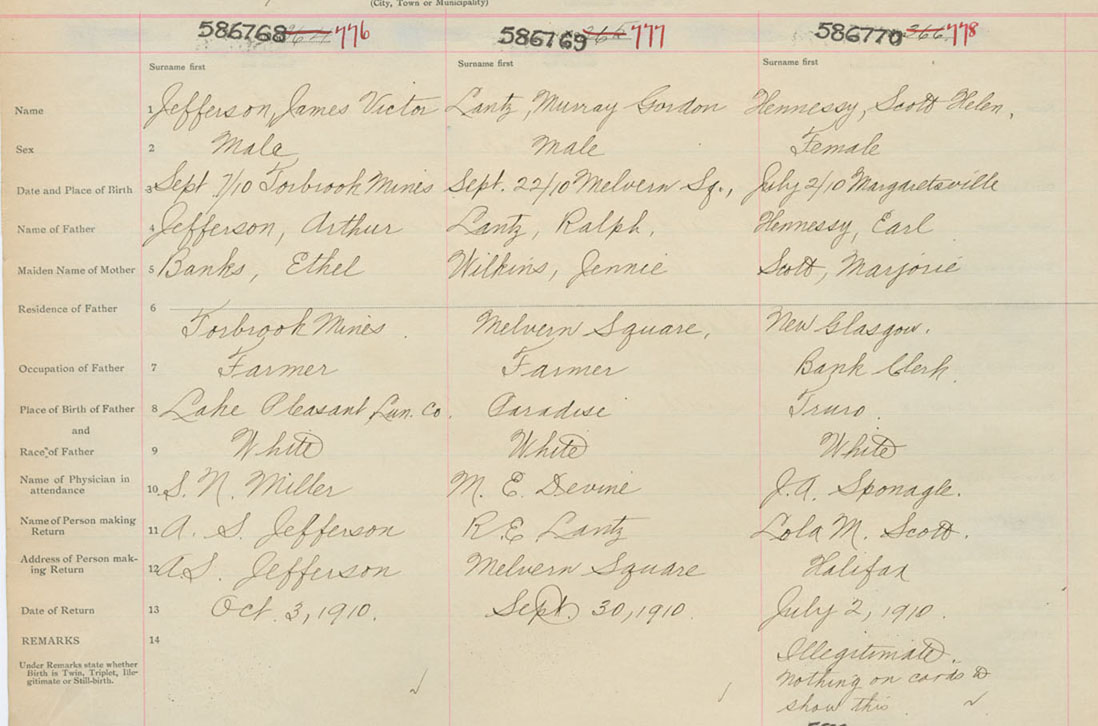 (City, Town or Municipality)
586768 776
586769 777
586770 778
Surname first Surname first Surname first
Name 1 Jefferson, James Victor Lantz, Murray Gordon Hennessy, Scott Helen,
Sex 2 Male Male Female
Date and Place of Birth 3 Sept 7/10 Torbrook Mines Sept. 22/10 Melvern Sq., July 2/10 Margaretsville
Name of Father 4 Jefferson, Arthur Lantz, Ralph, Hennessy, Earl
Maiden Name of Mother 5 Banks, Ethel Wilkins, Jennie Scott, Marjorie
Residence of Father 6 Torbrook Mines. Melvern Square, New Glasgow.
Occupation of Father 7 Farmer Farmer Bank Clerk.
Place of Birth of Father 8 Lake Pleasant Lun. Co. Paradise Truro.
and
Race of Father 9 White White White
Name of Physician in
attendance 10 S. N. Miller M. E. Devine J. A. Sponagle.
Name of Person making
Return 11 A. S. Jefferson R. E. Lantz Lola M. Scott.
Address of Person mak-
ing Return 12 A S. Jefferson Melvern Square Halifax
Date of Return 13 Oct. 3, 1910. Sept. 30, 1910. July 2, 1910.
REMARKS 14 Illegitimate.
Under Remarks state whether
Birth is Twin, Triplet, Ille-
gitimate or Still-birth.
nothing on cards to
show this